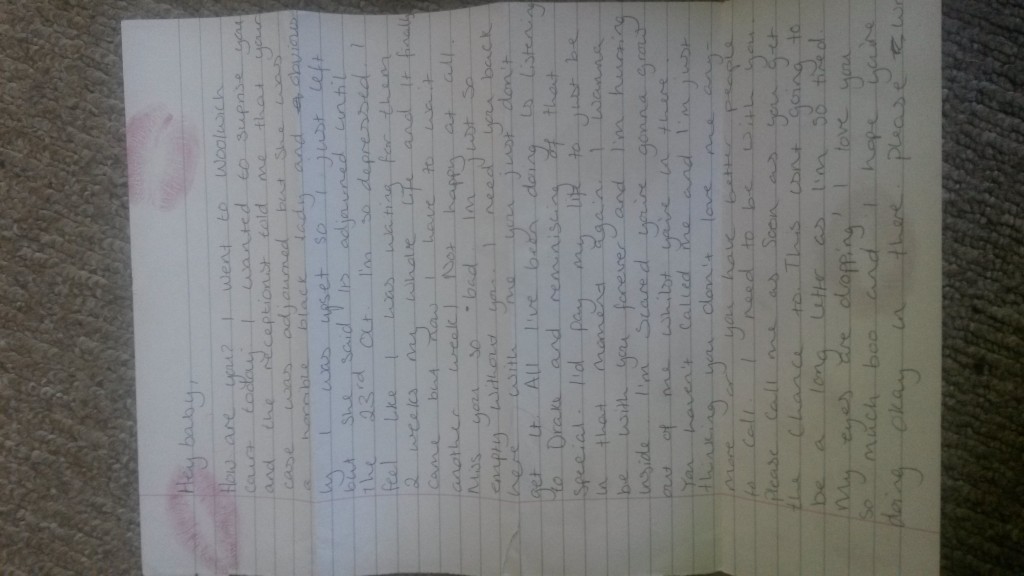 Hey baby,
How are you? I went to Woolwich
court today. I wanted to suprise you
and the receptionist told me that your
case was adjourned but she was
a horrible black lady and obvious
ly I was upset so I just left
but she said is adjourned until
the 23rd Oct I'm so depressed. I
feel like I was waiting for them
2 weeks my whole life and it finally
came but now I have to wait
another week! Not happy at all.
Miss you so bad I'm just so
empty without you. I need you back
here with me you just don't
get it. All I've been doing is listening
to Drake and remanising of that
special. I'd pay my life to just be
in that moment again. I wanna
be with you forever and I'm hurting
inside I'm scared you're gonna grow
out of me whilst you're in there.
You haven't called me and I'm just
thinking you don't love me any-
more or you have better people
to call. I need to be with you.
Please call me as soon as you get
the chance to. This wont going to
be a long letter as I'm so tired
my eyes are dropping, I love you
so much boo and I hope you're
doing okay in there. please